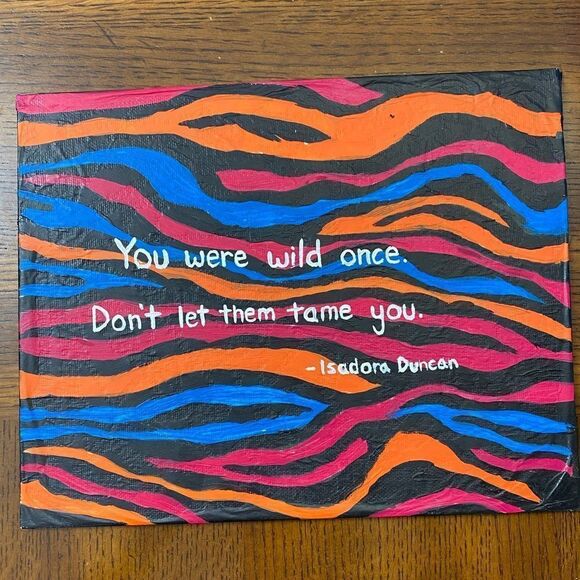 You were wild once.
Don't let them tame you.
-Isadora Duncan